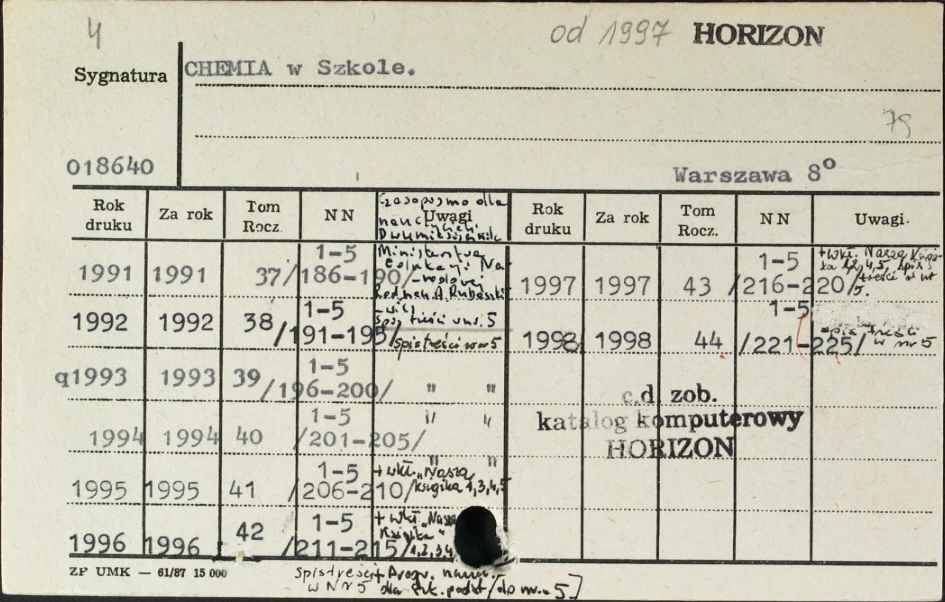 4
od 1997 HORIZON
Sygnatura
CHEMIA w Szkole.
79
018640
Warszawa 8º
Rok druku Za rok Tom Rocz. NN Uwagi Rok druku Za rok Tom Rocz. NN Uwagi
Czasopismo dla
nauczycieli
Dwumiesięcznik
1991 1991 37 1-5 /186-190/
Ministerstwo
Edukacji Na-
rodowej
1997 1997 43 1-5 /216-220/
+ wkł. Nasza Książ-
1992 1992 38 1-5 /191-195/
spis treści w nr. 5
spis treści w nr 5
1998 1998 44 1-5 /221-225/
spis treści
w nr 5
q1993 1993 39 1-5 /196-200/ " "
c.d. zob.
katalog komputerowy
HORIZON
1994 1994 40 1-5 /201-205/ " "
" "
1995 1995 41 1-5 /206-210/
+ wkł. „Nasza
Książka 1,3,4,5
1996 1996 42 1-5 /211-215/
+ wkł. „Nasza
Książka"
1,2,3,4
ZP UMK — 61/87 15 000
spis treści
w Nr 5
+ Progr. naucz.
dla szk. podst /do nr. 5]